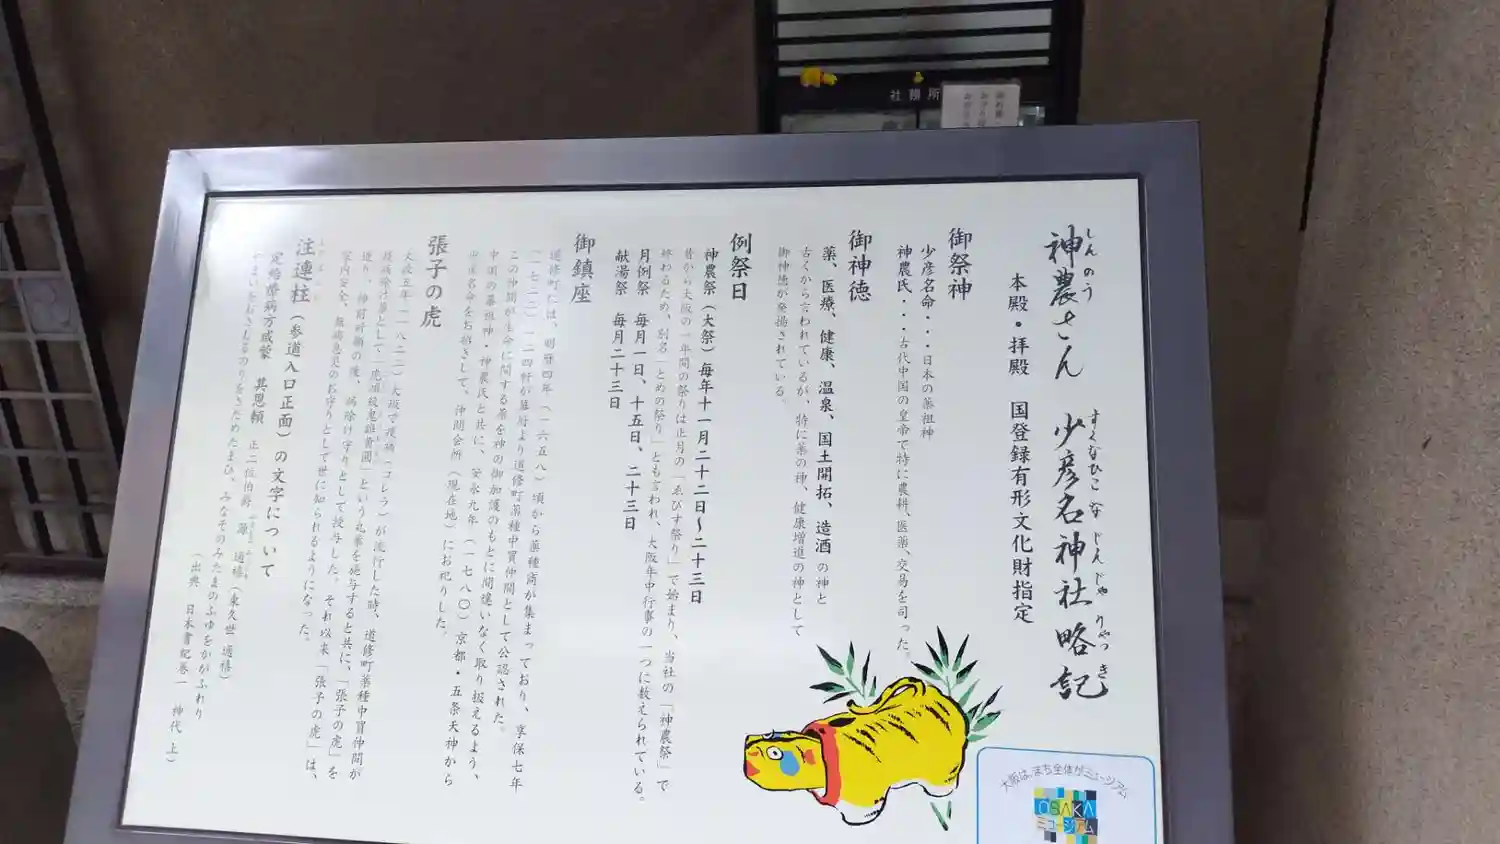 社務所
神農さん 少彦名神社略記
しんのう すくなひこなじんじゃ りゃっき
本殿・拝殿 国登録有形文化財指定
御祭神
少彦名命・・・日本の薬祖神
神農氏・・・古代中国の皇帝で特に農耕、医薬、交易を司った。
御神徳
薬、医療、健康、温泉、国土開拓、造酒の神と
古くから言われているが、特に薬の神、健康増進の神として
御神徳が発揚されている。
例祭日
神農祭（大祭）毎年十一月二十二日〜二十三日
昔から大阪の一年間の祭りは正月の「ゑびす祭り」で始まり、当社の「神農祭」で
終わるため、別名「とめの祭り」とも言われ、大阪年中行事の一つに数えられている。
月例祭 毎月一日、十五日、二十三日
献湯祭 毎月二十三日
御鎮座
道修町には、明暦四年（一六五八）頃から薬種商が集まっており、享保七年
（一七二二）一二四軒が幕府より道修町薬種中買仲間として公認された。
この仲間が生命に関する薬を神の御加護のもとに間違いなく取り扱えるよう、
中国の薬祖神・神農氏と共に、安永九年（一七八〇）京都・五条天神から
少彦名命をお招きして、仲間会所（現在地）にお祀りした。
張子の虎
文政五年（一八二二）大坂で疫病（コレラ）が流行した時、道修町薬種中買仲間が
疫病除け薬として「虎頭殺鬼雄黄圓」という丸薬を施与すると共に、「張子の虎」を
造り、神前祈願の後、病除け守りとして授与した。それ以来「張子の虎」は、
家内安全、無病息災のお守りとして世に知られるようになった。
注連柱（参道入口正面）の文字について
定給療病方咸蒙 其恩頼 正二位伯爵 源 通禧（東久世 通禧）
やまいをおさむるのりをさだめたまひ、みなそのみたまのふゆをかがふれり
（出典 日本書紀巻一 神代 上）
大阪は、まち全体がミュージアム
OSAKA
ミュージアム